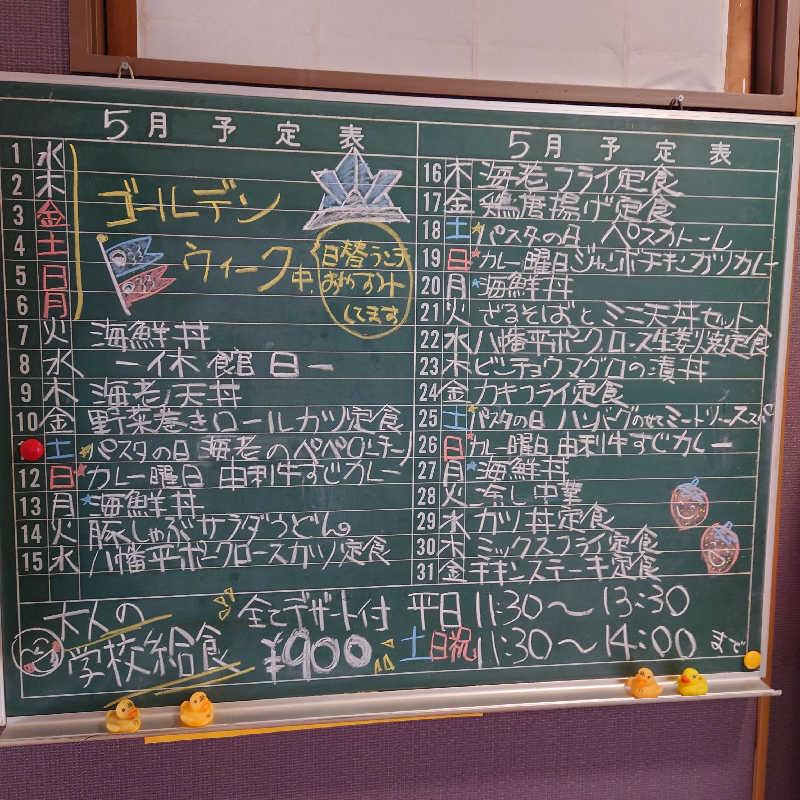 5月予定表
1 水
2 木
3 金
4 土
5 日
6 月
ゴールデン
ウィーク中
日替りランチ
おやすみ
してます
7 火 海鮮丼
8 水 ー休館日ー
9 木 海老天丼
10 金 野菜巻きロールカツ定食
土 パスタの日 海老のペペロンチーノ
12 日 カレー曜日 由利牛すじカレー
13 月 海鮮丼
14 火 豚しゃぶサラダうどん
15 水 八幡平ポークロースカツ定食
5月予定表
16 木 海老フライ定食
17 金 鶏唐揚げ定食
18 土 パスタの日 ペスカトーレ
19 日 カレー曜日 ジャンボチキンカツカレー
20 月 海鮮丼
21 火 ざるそばとミニ天丼セット
22 水 八幡平ポークロース生姜焼定食
23 木 ビンチョウマグロの漬丼
24 金 カキフライ定食
25 土 パスタの日 ハンバーグのせミートソーススパ
26 日 カレー曜日 由利牛すじカレー
27 月 海鮮丼
28 火 冷し中華
29 水 カツ丼定食
30 木 ミックスフライ定食
31 金 チキンステーキ定食
大人の
学校給食
全てデザート付
¥900
平日 11:30〜13:30
土日祝 11:30〜14:00まで